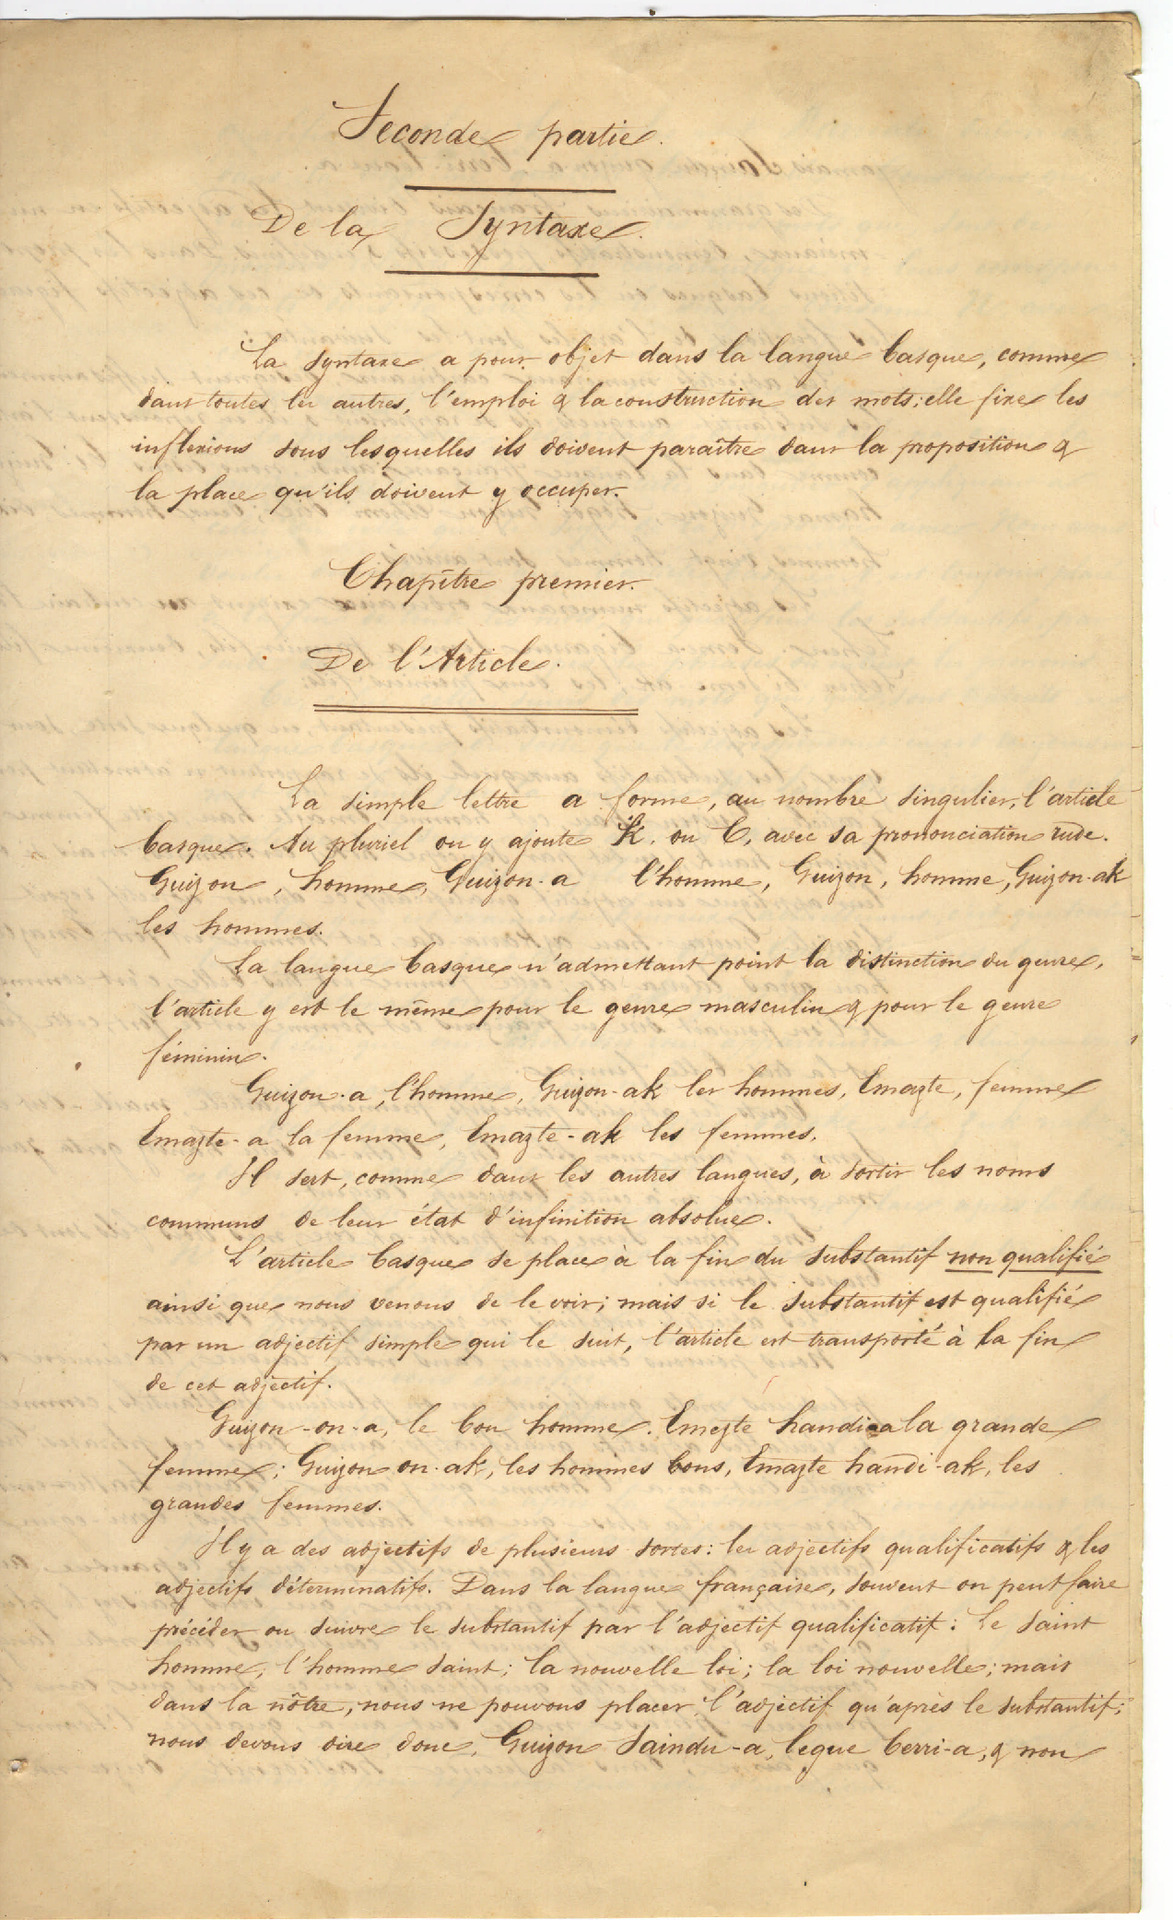 Seconde partie.
De la Syntaxe.
La syntaxe a pour objet dans la langue basque, comme
dans toutes les autres, l'emploi & la construction des mots; elle fixe les
inflexions sous lesquelles ils doivent paraître dans la proposition &
la place qu'ils doivent y occuper.
Chapître premier.
De l'Article.
La simple lettre a forme, au nombre singulier, l'article
basque. Au pluriel on y ajoute K. ou C, avec sa prononciation rude.
Guizon, homme, Guizon-a l'homme, Guizon, homme, Guizon-ak
les hommes.
La langue basque n'admettant point la distinction du genre,
l'article y est le même pour le genre masculin & pour le genre
féminin.
Guizon-a, l'homme, Guizon-ak les hommes, Emazte, femme
Emazte-a la femme, Emazte-ak les femmes.
Il sert, comme dans les autres langues, à sortir les noms
communs de leur état d'infinition absolue.
L'article basque se place à la fin du substantif non qualifié
ainsi que nous venons de le voir; mais si le substantif est qualifié
par un adjectif simple qui le suit, l'article est transporté à la fin
de cet adjectif.
Guizon-on-a, le bon homme. Emezte handi-a la grande
femme; Guizon on-ak, les hommes bons, Emazte handi-ak, les
grandes femmes.
Il y a des adjectifs de plusieurs sortes: les adjectifs qualificatifs & les
adjectifs déterminatifs. Dans la langue française, souvent on peut faire
précéder ou suivre le substantif par l'adjectif qualificatif: Le saint
homme, l'homme saint; la nouvelle loi; la loi nouvelle; mais
dans la nôtre, nous ne pouvons placer l'adjectif qu'après le substantif;
nous devons dire donc, Guizon Saindu-a, legue berri-a, & non